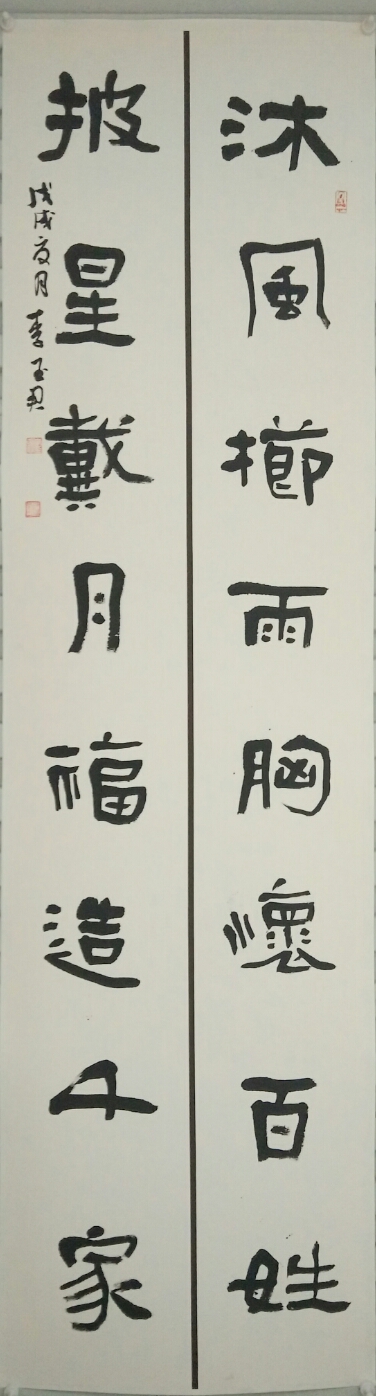 沐風櫛雨胸懷百姓
披星戴月福造千家
戊戌夏月李玉